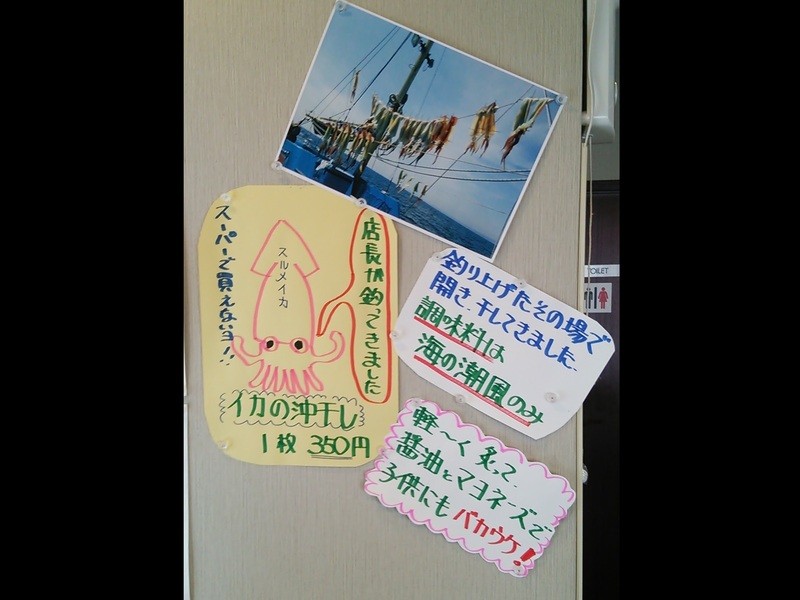 スーパーで買えないョ!!
スルメイカ
店長が釣ってきました
イカの沖干し
1枚 350円
釣り上げたその場で
開き、干してきました。
調味料は
海の潮風のみ
軽〜く炙って
醤油とマヨネーズで
子供にもバカウケ!
TOILET